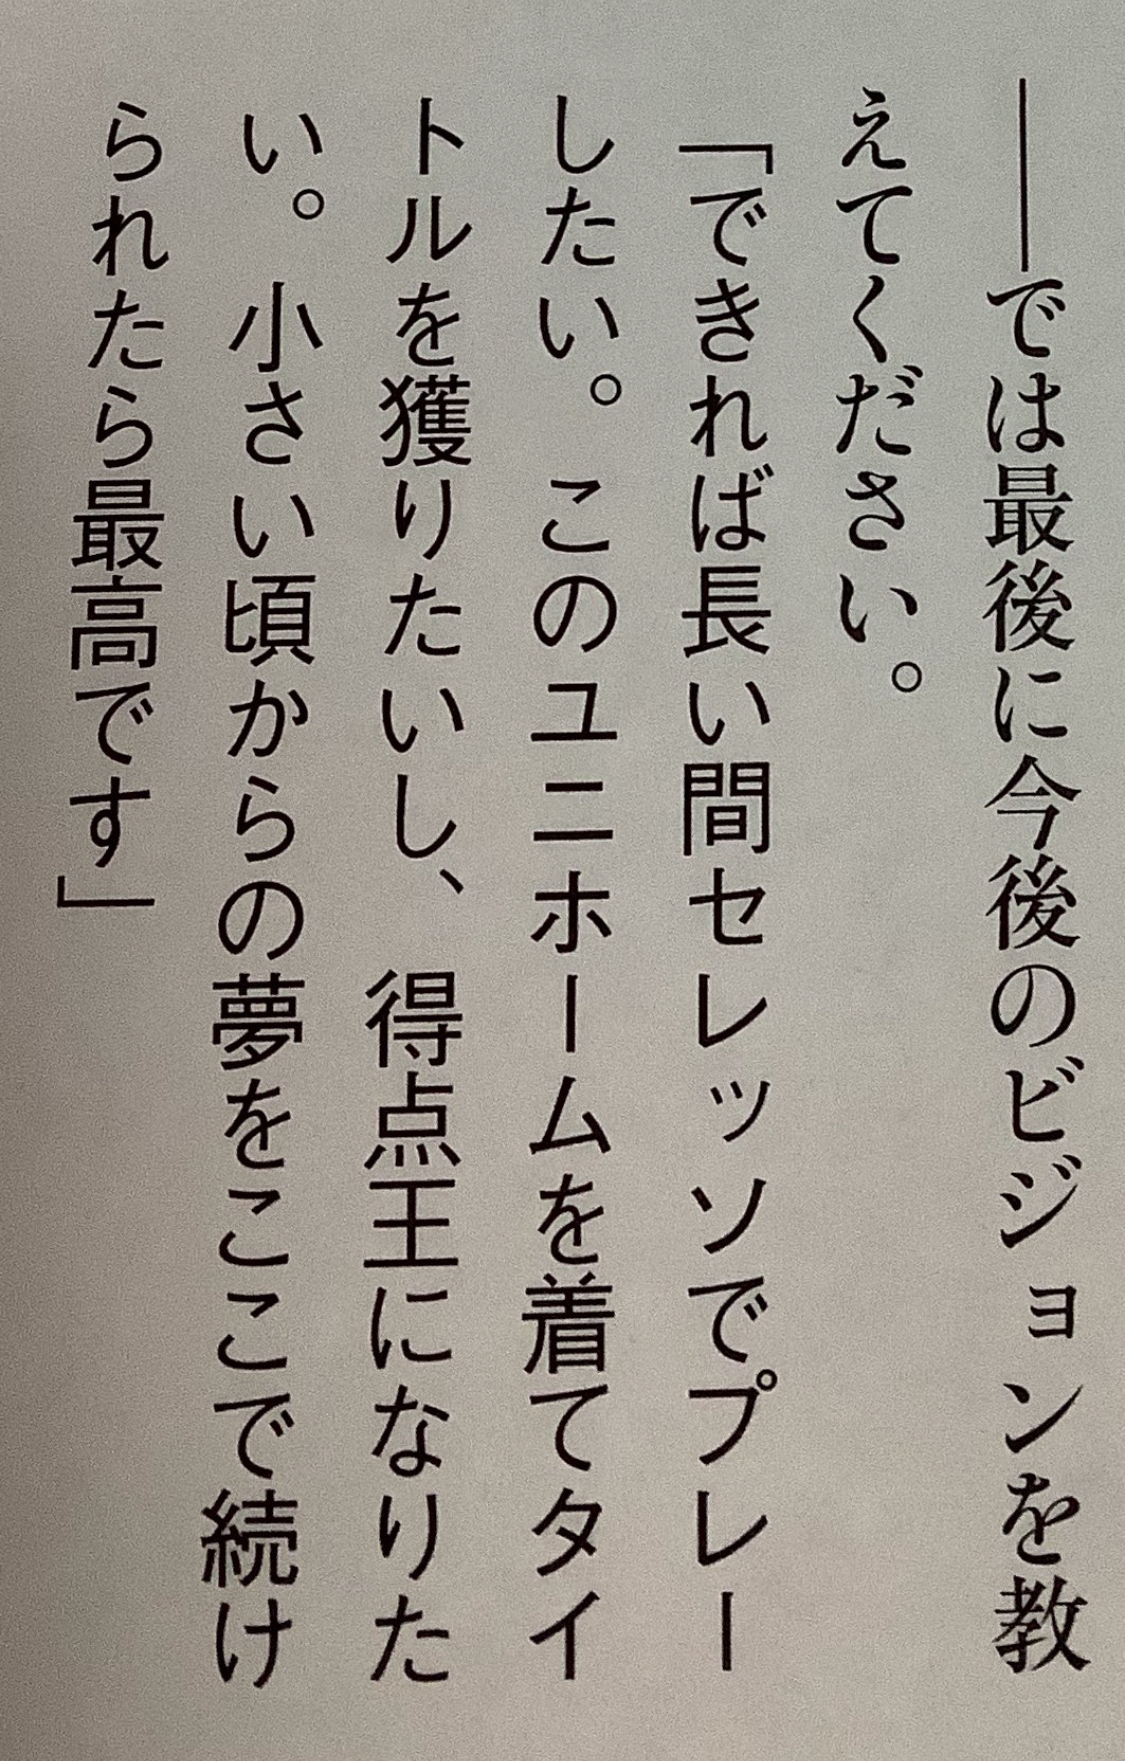 ――では最後に今後のビジョンを教
えてください。
「できれば長い間セレッソでプレー
したい。このユニホームを着てタイ
トルを獲りたいし、得点王になりた
い。小さい頃からの夢をここで続け
られたら最高です」